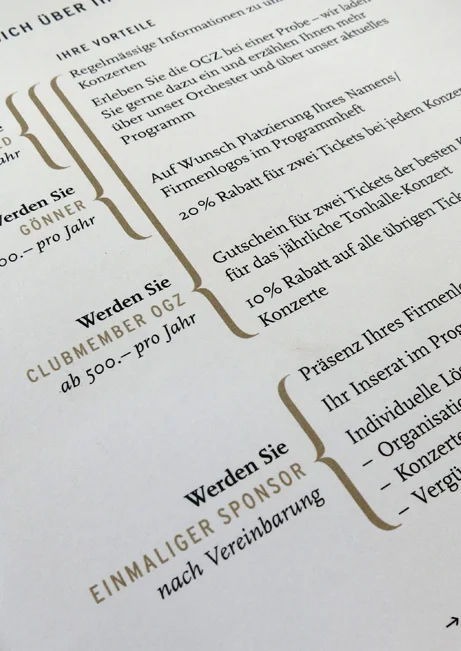 SICH ÜBER IH
IHRE VORTEILE
Regelmässige Informationen zu un
Konzerten
Erleben Sie die OGZ bei einer Probe – wir laden
Sie gerne dazu ein und erzählen Ihnen mehr
über unser Orchester und über unser aktuelles
Programm
Auf Wunsch Platzierung Ihres Namens/
Firmenlogos im Programmheft
20% Rabatt für zwei Tickets bei jedem Konze
Gutschein für zwei Tickets der besten K
für das jährliche Tonhalle-Konzert
10% Rabatt auf alle übrigen Tick
Konzerte
ahr
Werden Sie
GÖNNER
00.– pro Jahr
Werden Sie
CLUBMEMBER OGZ
ab 500.– pro Jahr
Präsenz Ihres Firmenlo
Ihr Inserat im Prog
Individuelle Lös
– Organisatio
– Konzerte
– Vergü
Werden Sie
EINMALIGER SPONSOR
nach Vereinbarung